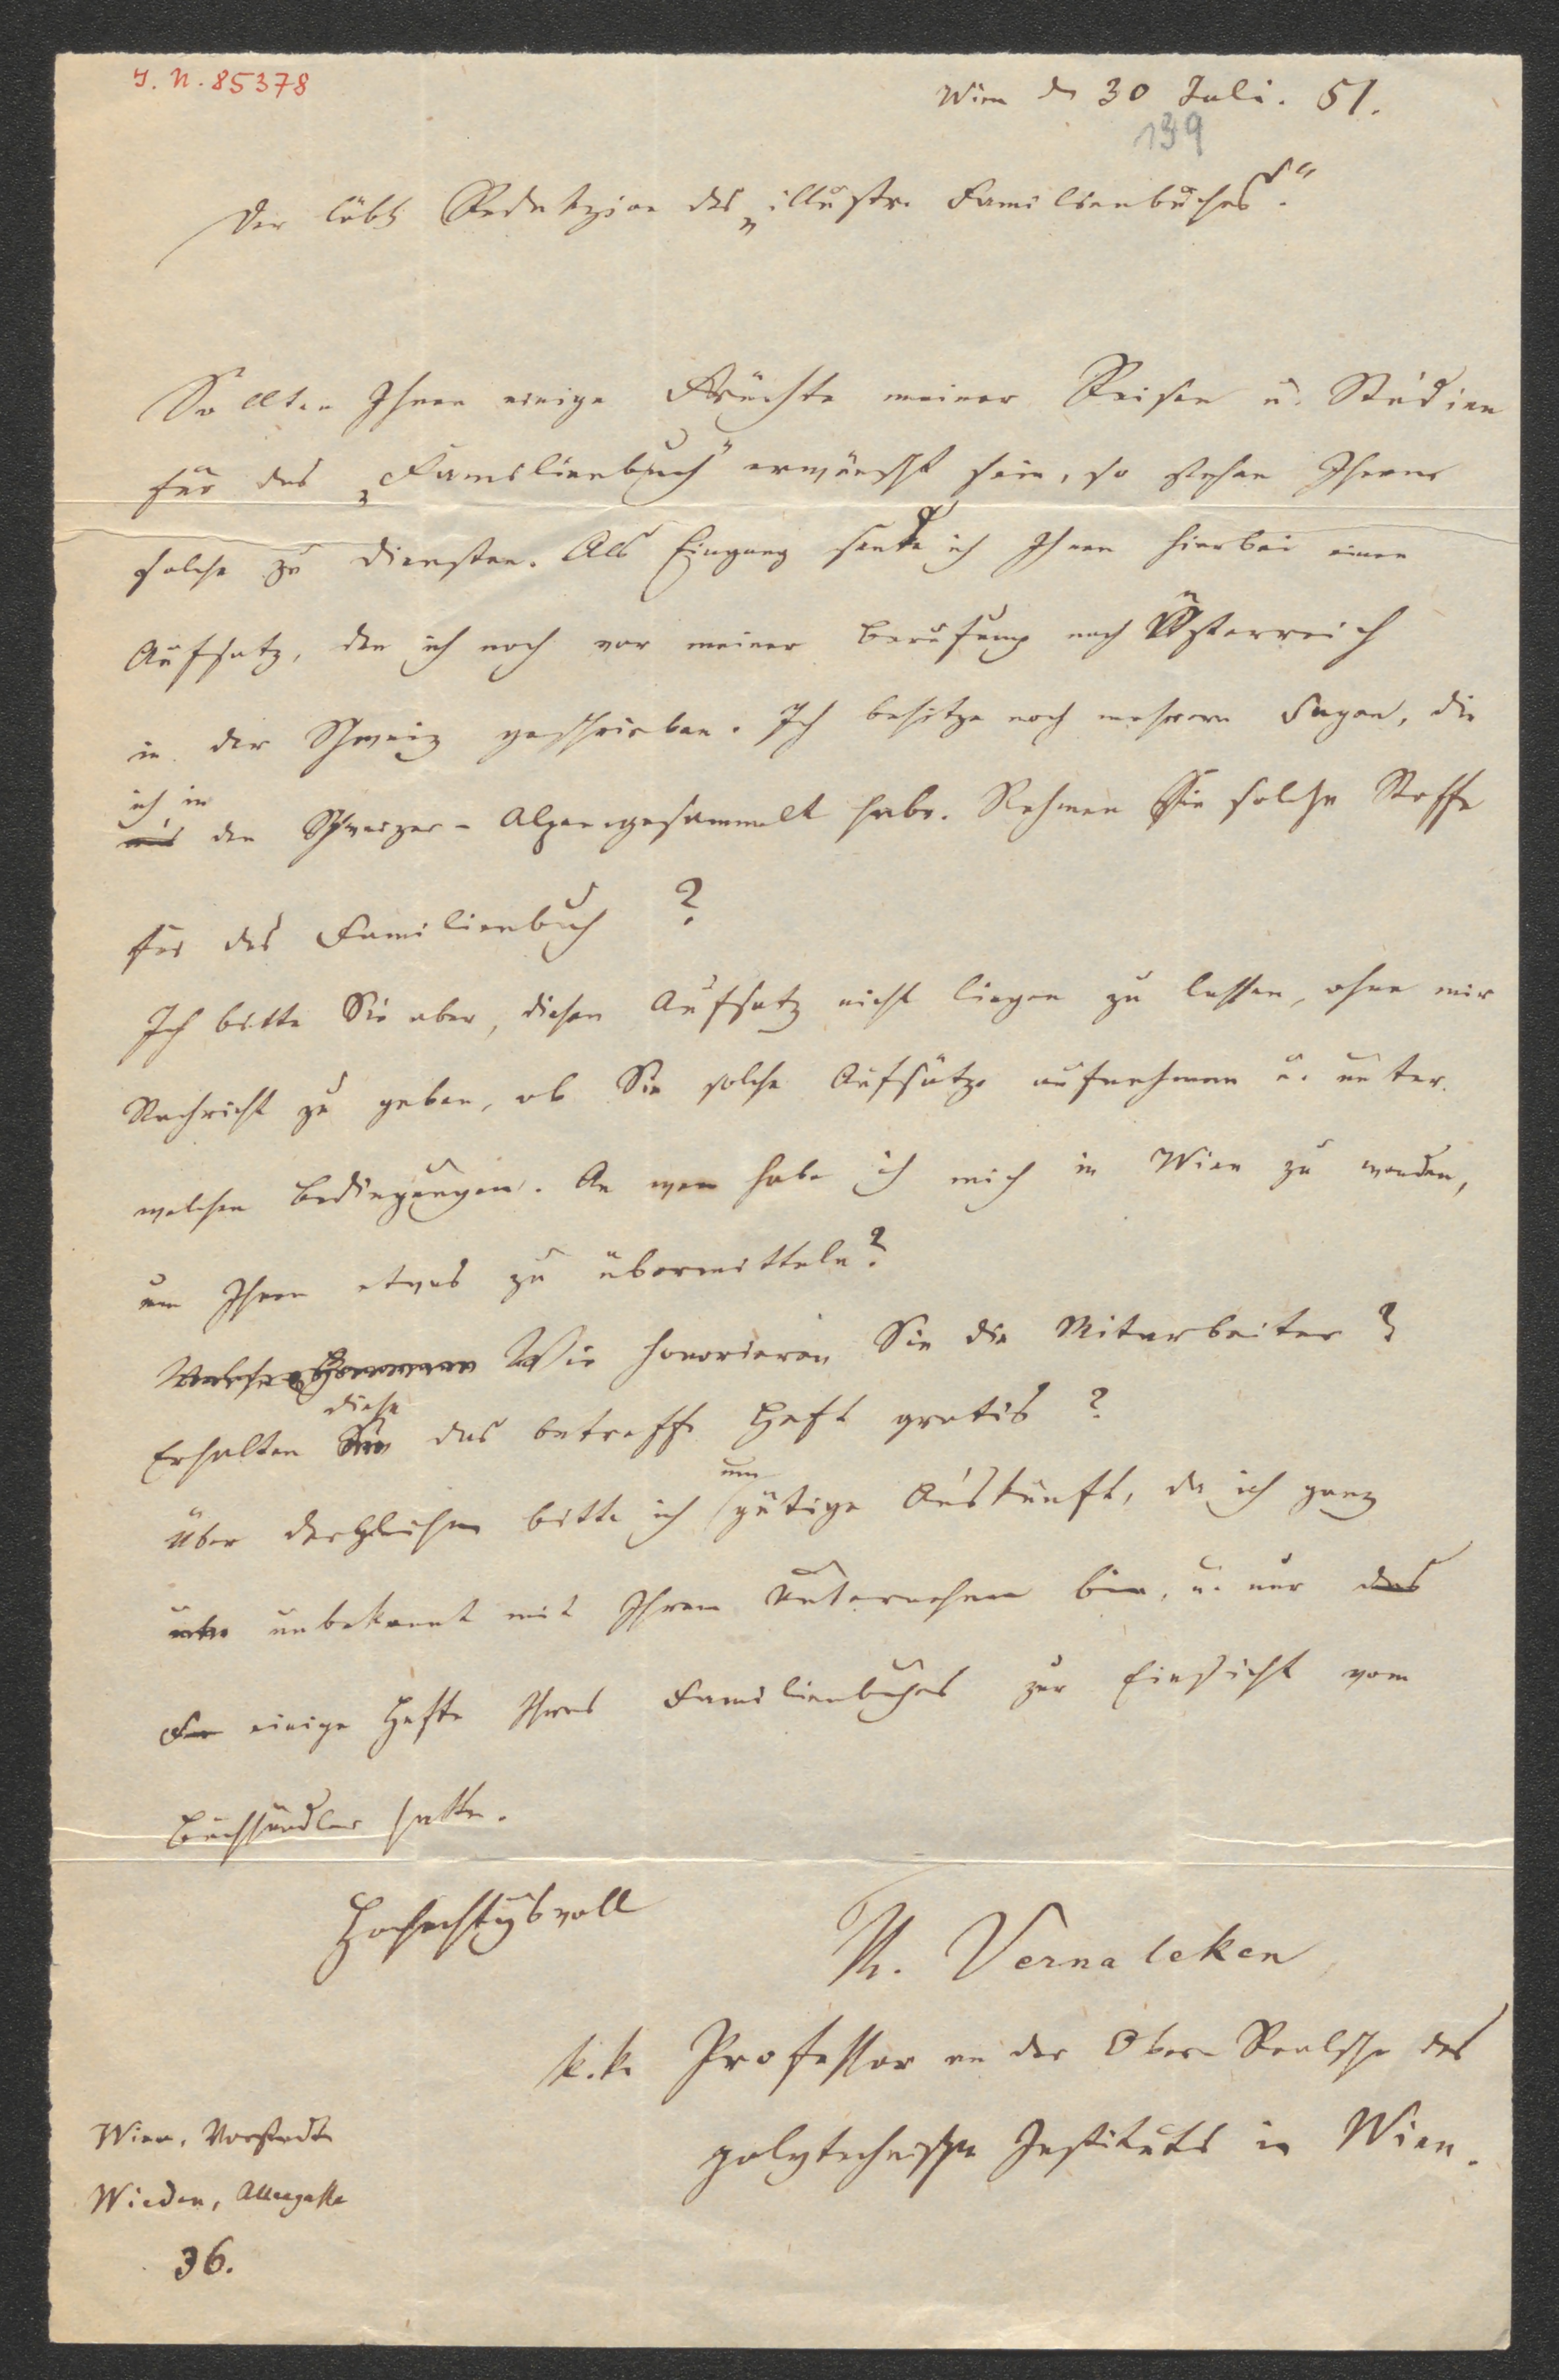 J. N. 85378
Wien d. 30 Juli. 51.
139
Der löbl. Redakzion des „illustr. Familienbuches“.
Sollten Ihnen einige Früchte meiner Reisen u. Studien
für das „Familienbuch“ erwünscht sein, so stehen Ihnen
solche zu Diensten. Als Eingang sende ich Ihnen hierbei einen
Aufsatz, den ich noch vor meiner Berufung nach Österreich
in der Schweiz geschrieben. Ich besitze noch mehrere Sagen, die
ich in
aus den Schweizer-Alpen gesammelt habe. Nehmen Sie solche Stoffe
für das Familienbuch?
Ich bitte Sie aber, diesen Aufsatz nicht liegen zu lassen, ohne mir
Nachricht zu geben, ob Sie solche Aufsätze aufnehmen u. unter
welchen Bedingungen. An wen habe ich mich in Wien zu wenden,
um Ihnen etwas zu übermitteln?
Wie honorieren Sie die Mitarbeiter?
diese
Erhalten Sie das betreff. Heft gratis?
um
Über dergleichen bitte ich gütige Auskunft, da ich ganz
unbekannt mit Ihrem Unternehmen bin, u. nur das
Fa einige Hefte Ihres Familienbuches zur Einsicht vom
Buchhändler hatte.
Hochachtungsvoll
Th. Vernaleken
k.k. Professor an der Ober-Realsch. des
polytechnischen Instituts in Wien.
Wien, Vorstadt
Wieden, Alleegasse
36.